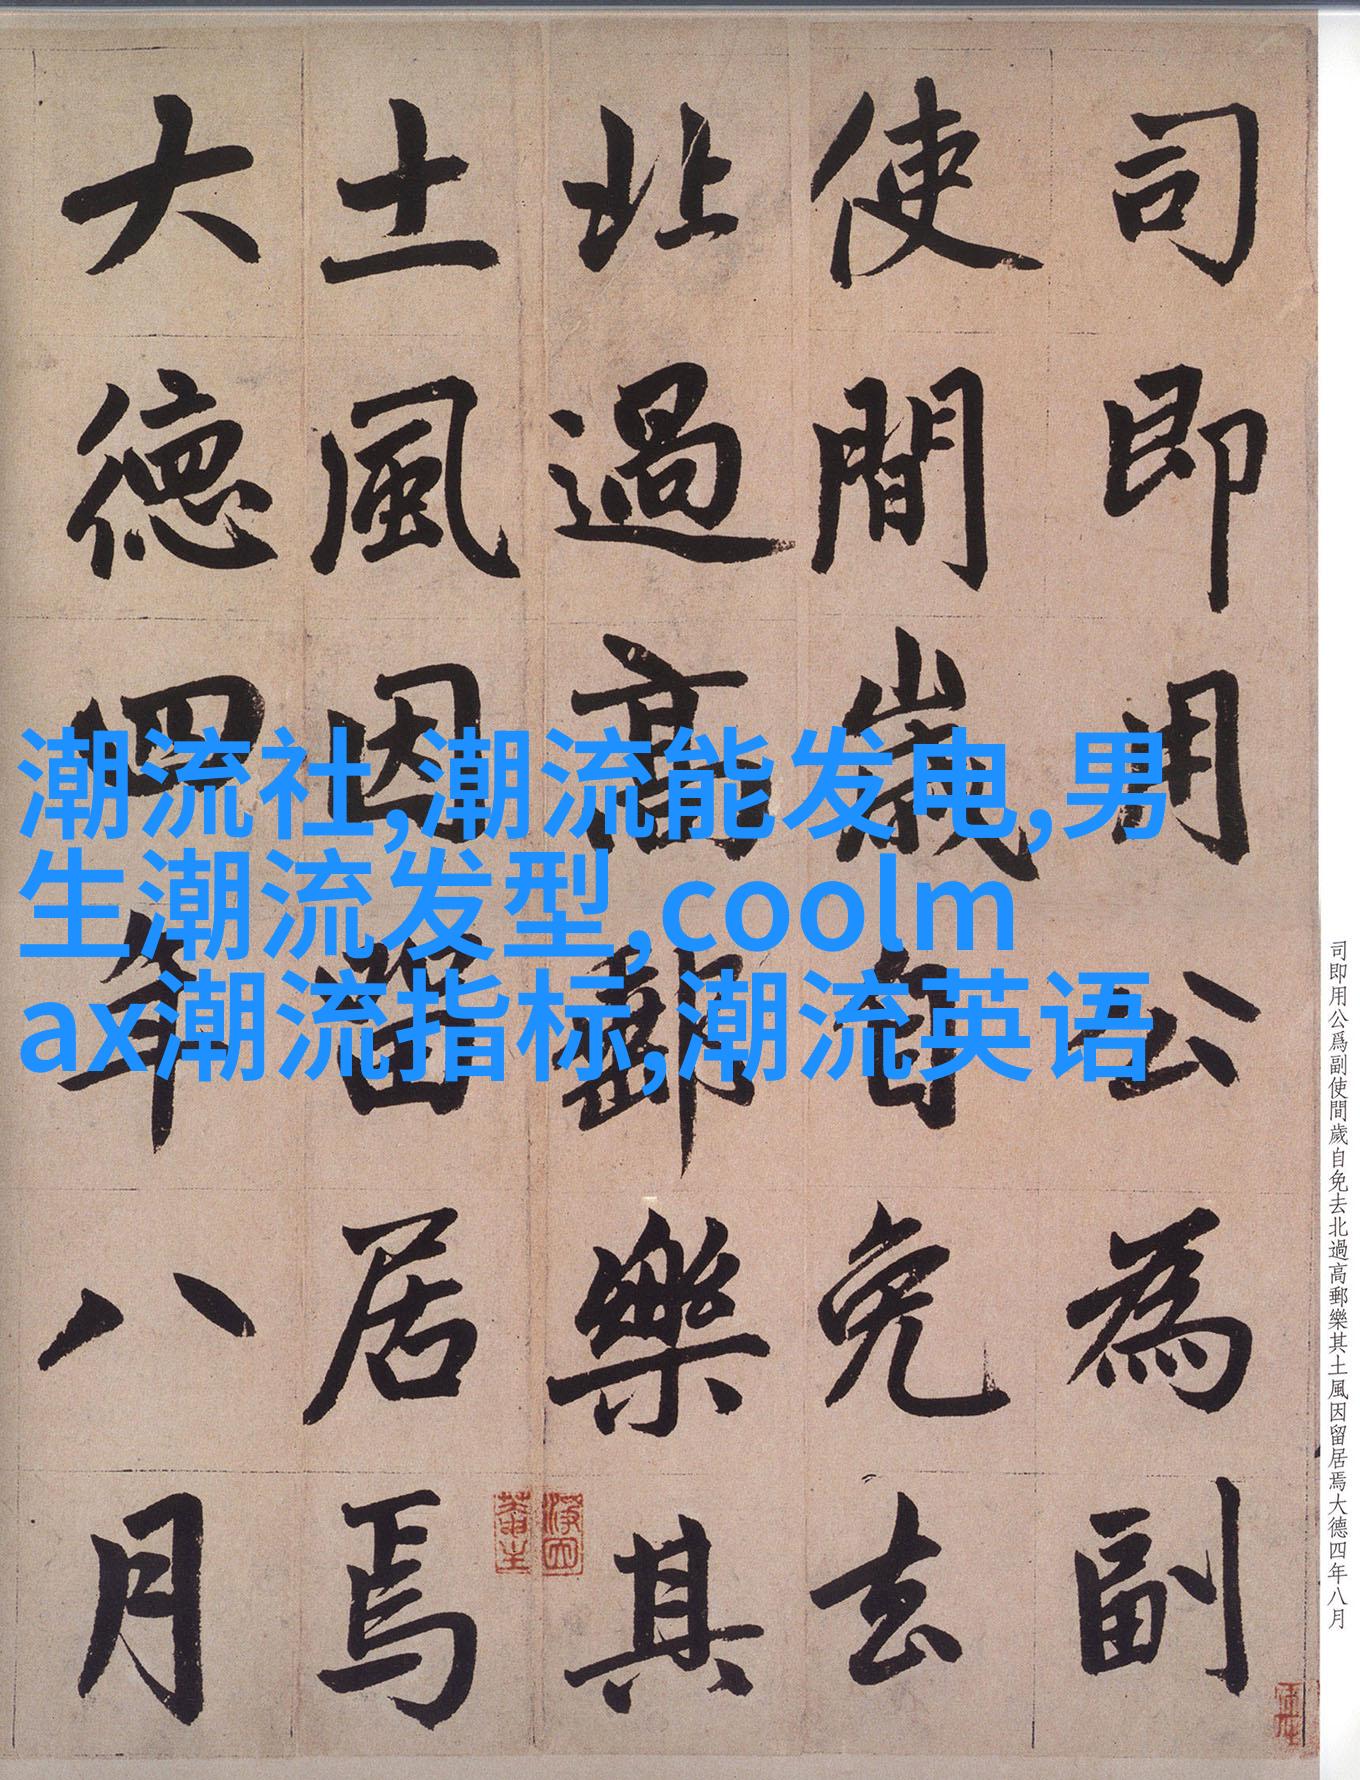 司即用公為副
使間歲自免去
北過高郵樂其
土風因留居焉
大德四年八月
潮流社,潮流能发电,男
生潮流发型,coolm
ax潮流指标,潮流英语
司即用公爲副使間歲自免去北過高郵樂其土風因留居焉大德四年八月